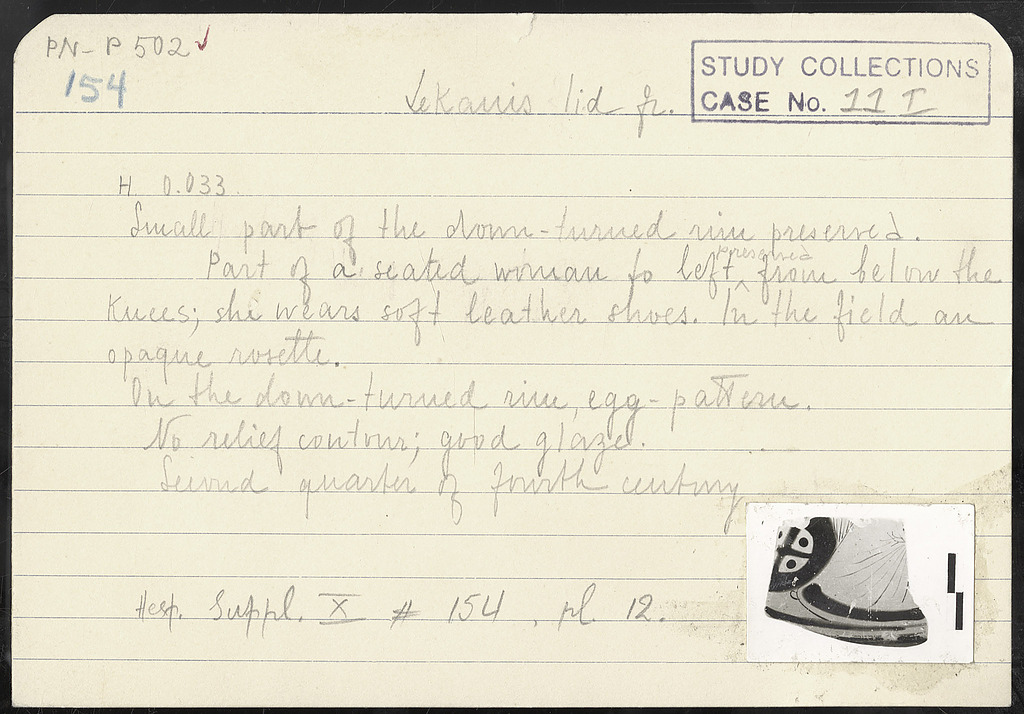 PN-P 502 ✓
154
STUDY COLLECTIONS
CASE No. 11 I
Lekanis lid fr.
H. 0.033.
Small part of the down-turned rim preserved.
Part of a seated woman to left, preserved from below the
knees; she wears soft leather shoes. In the field an
opaque rosette.
On the down-turned rim, egg-pattern.
No relief contour; good glaze.
Second quarter of fourth century
Hesp. Suppl. X # 154, pl. 12.